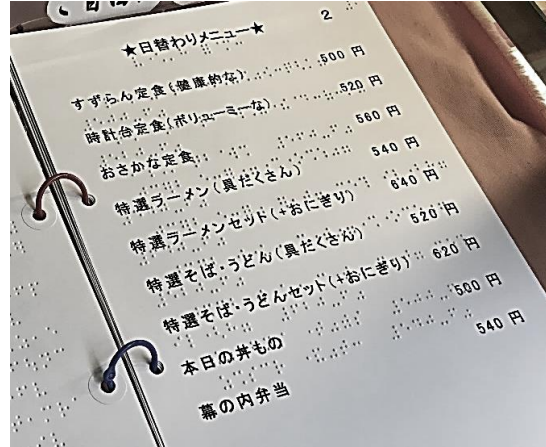 2
★日替わりメニュー★
すずらん定食(健康的な) 500 円
時計台定食(ボリューミーな) 520 円
おさかな定食 560 円
特選ラーメン(具だくさん) 540 円
特選ラーメンセット(+おにぎり) 640 円
特選そば・うどん(具だくさん) 520 円
特選そば・うどんセット(+おにぎり) 620 円
本日の丼もの 500 円
幕の内弁当 540 円